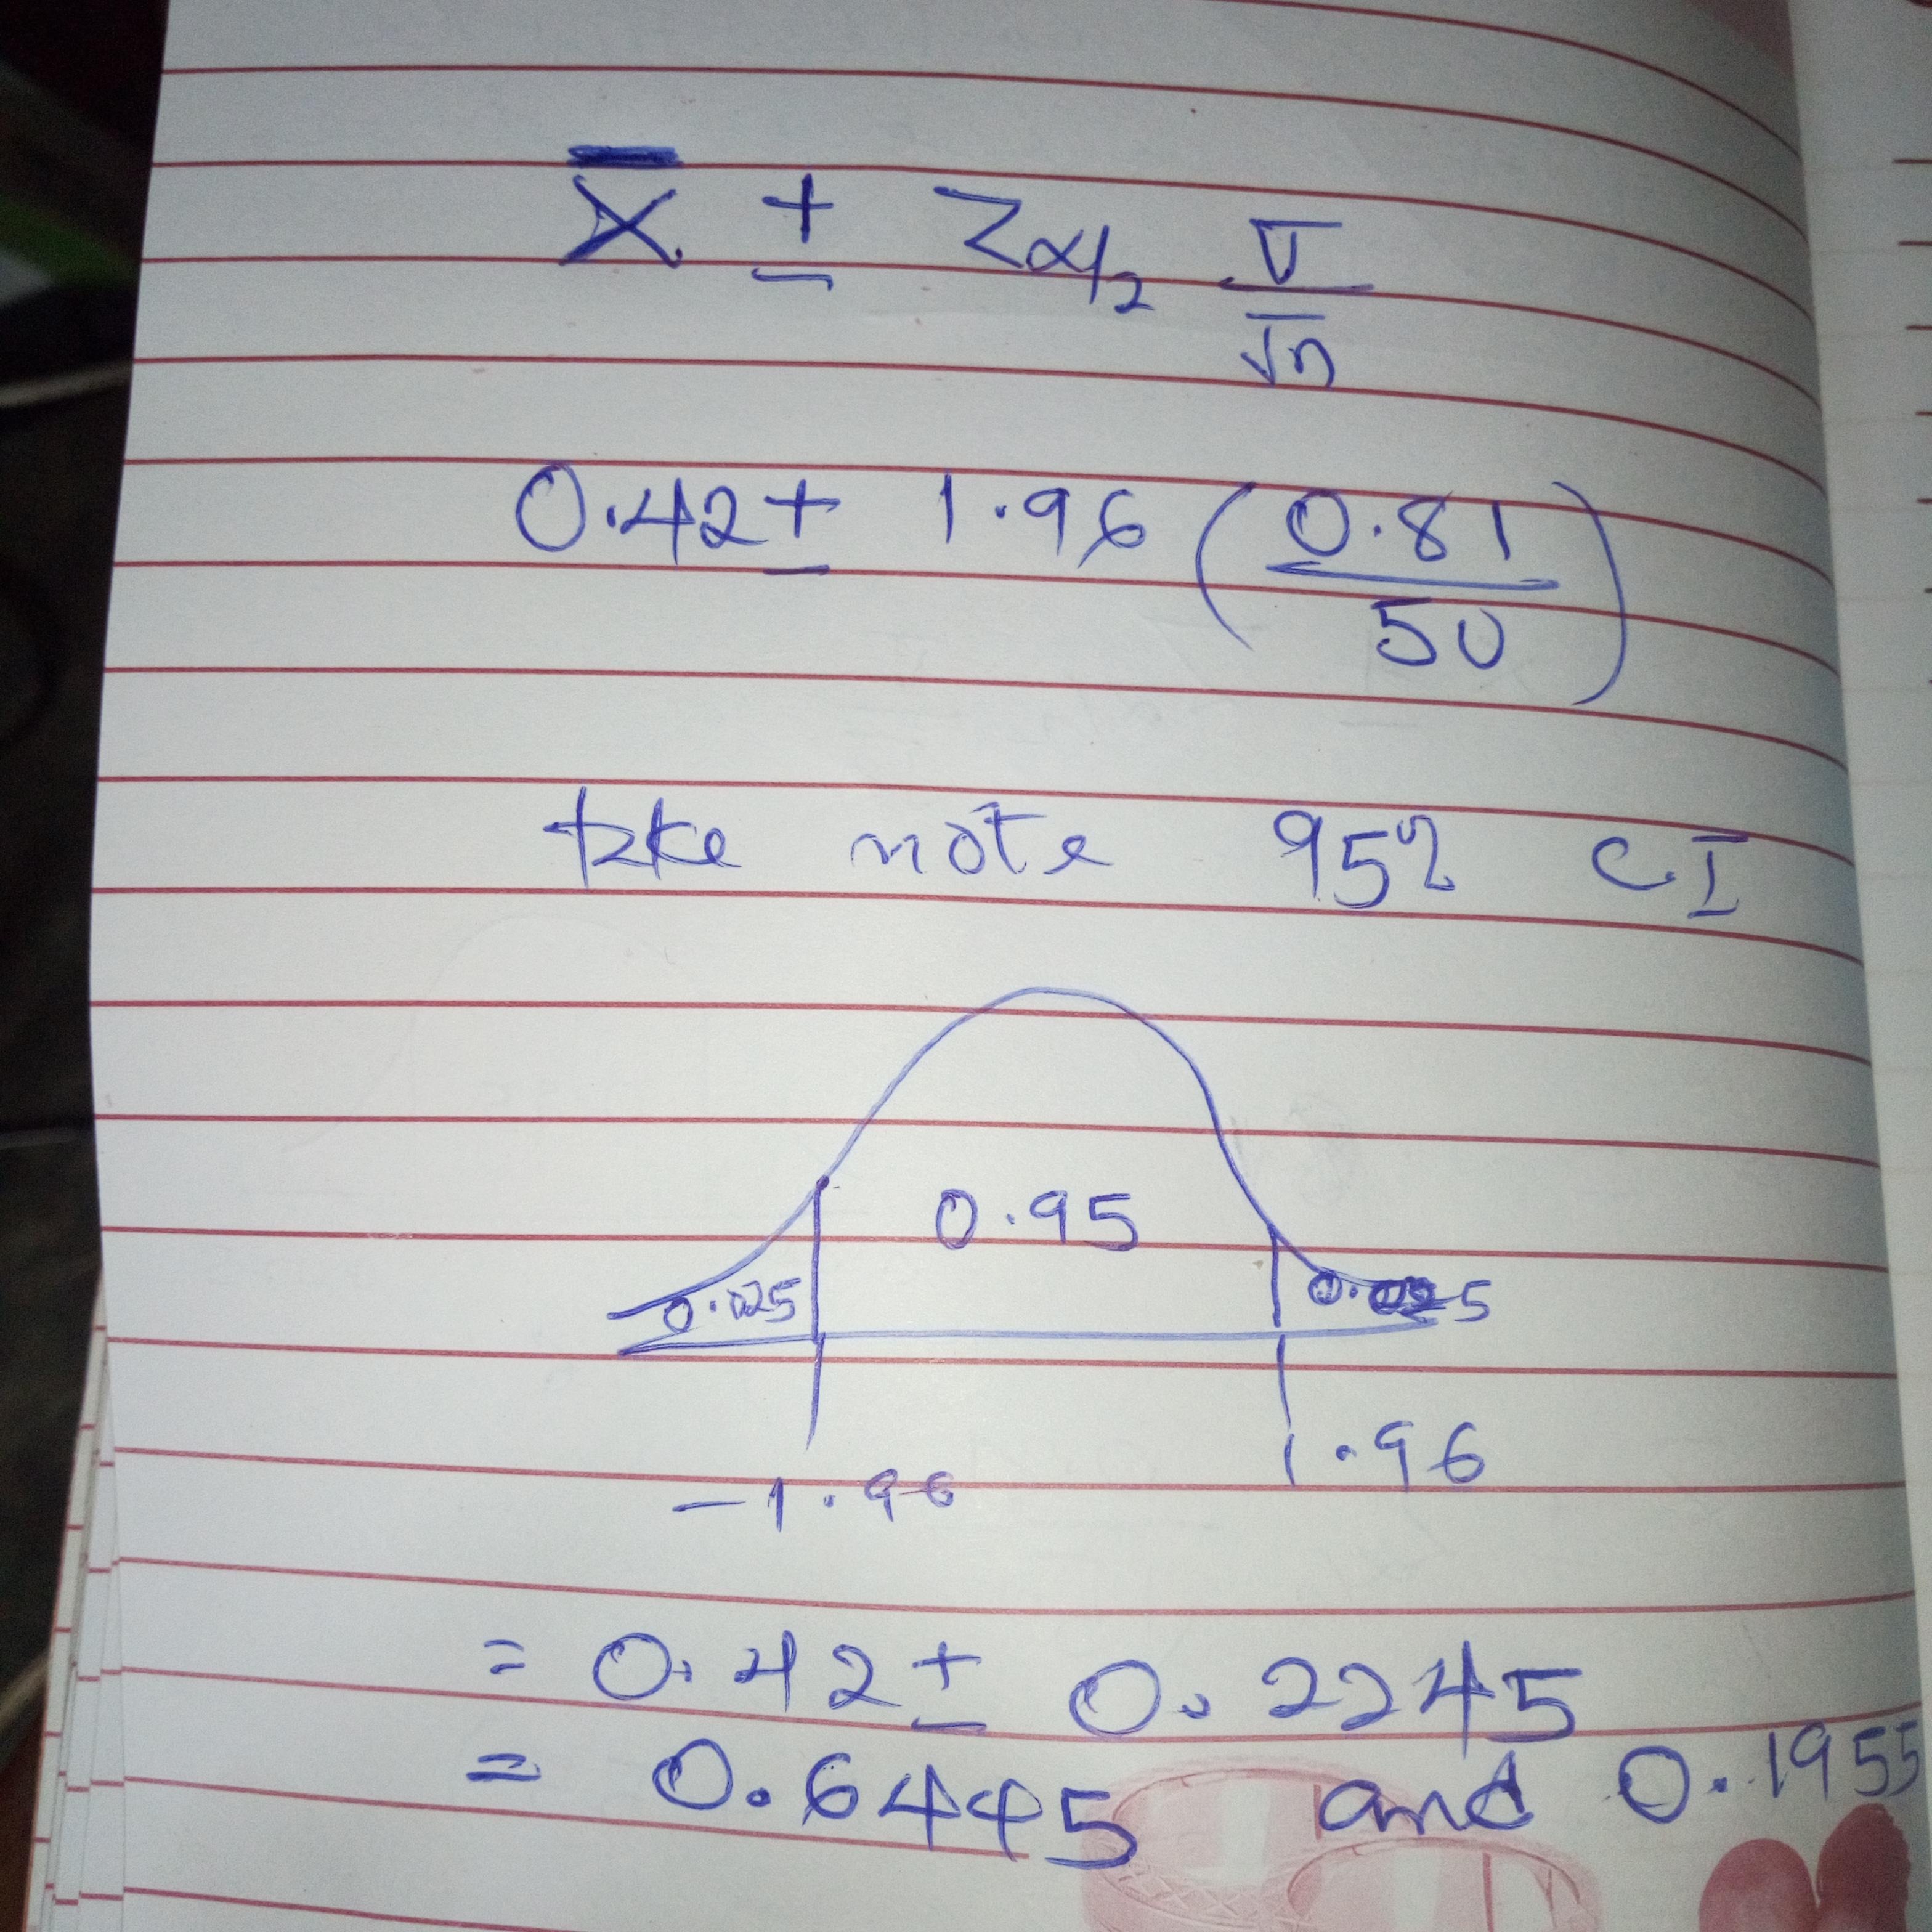 X̄ ± Zα/2 σ/√n
0.42 ± 1.96 (0.81/50)
take note 95% CI
0.95
0.025 0.025
-1.96 1.96
= 0.42 ± 0.2245
= 0.6445 and 0.1955